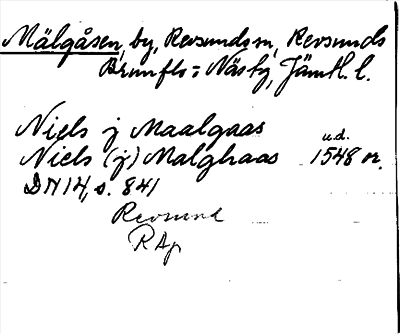 Mälgåsen, by, Revsunds sn, Revsunds
Brunflo o Näs tg, Jämtl. l.
Niels j Maalgaas
u.d.
Niels (j) Malghaas 1548 or.
DN 14, s. 841
Revsund
RAp